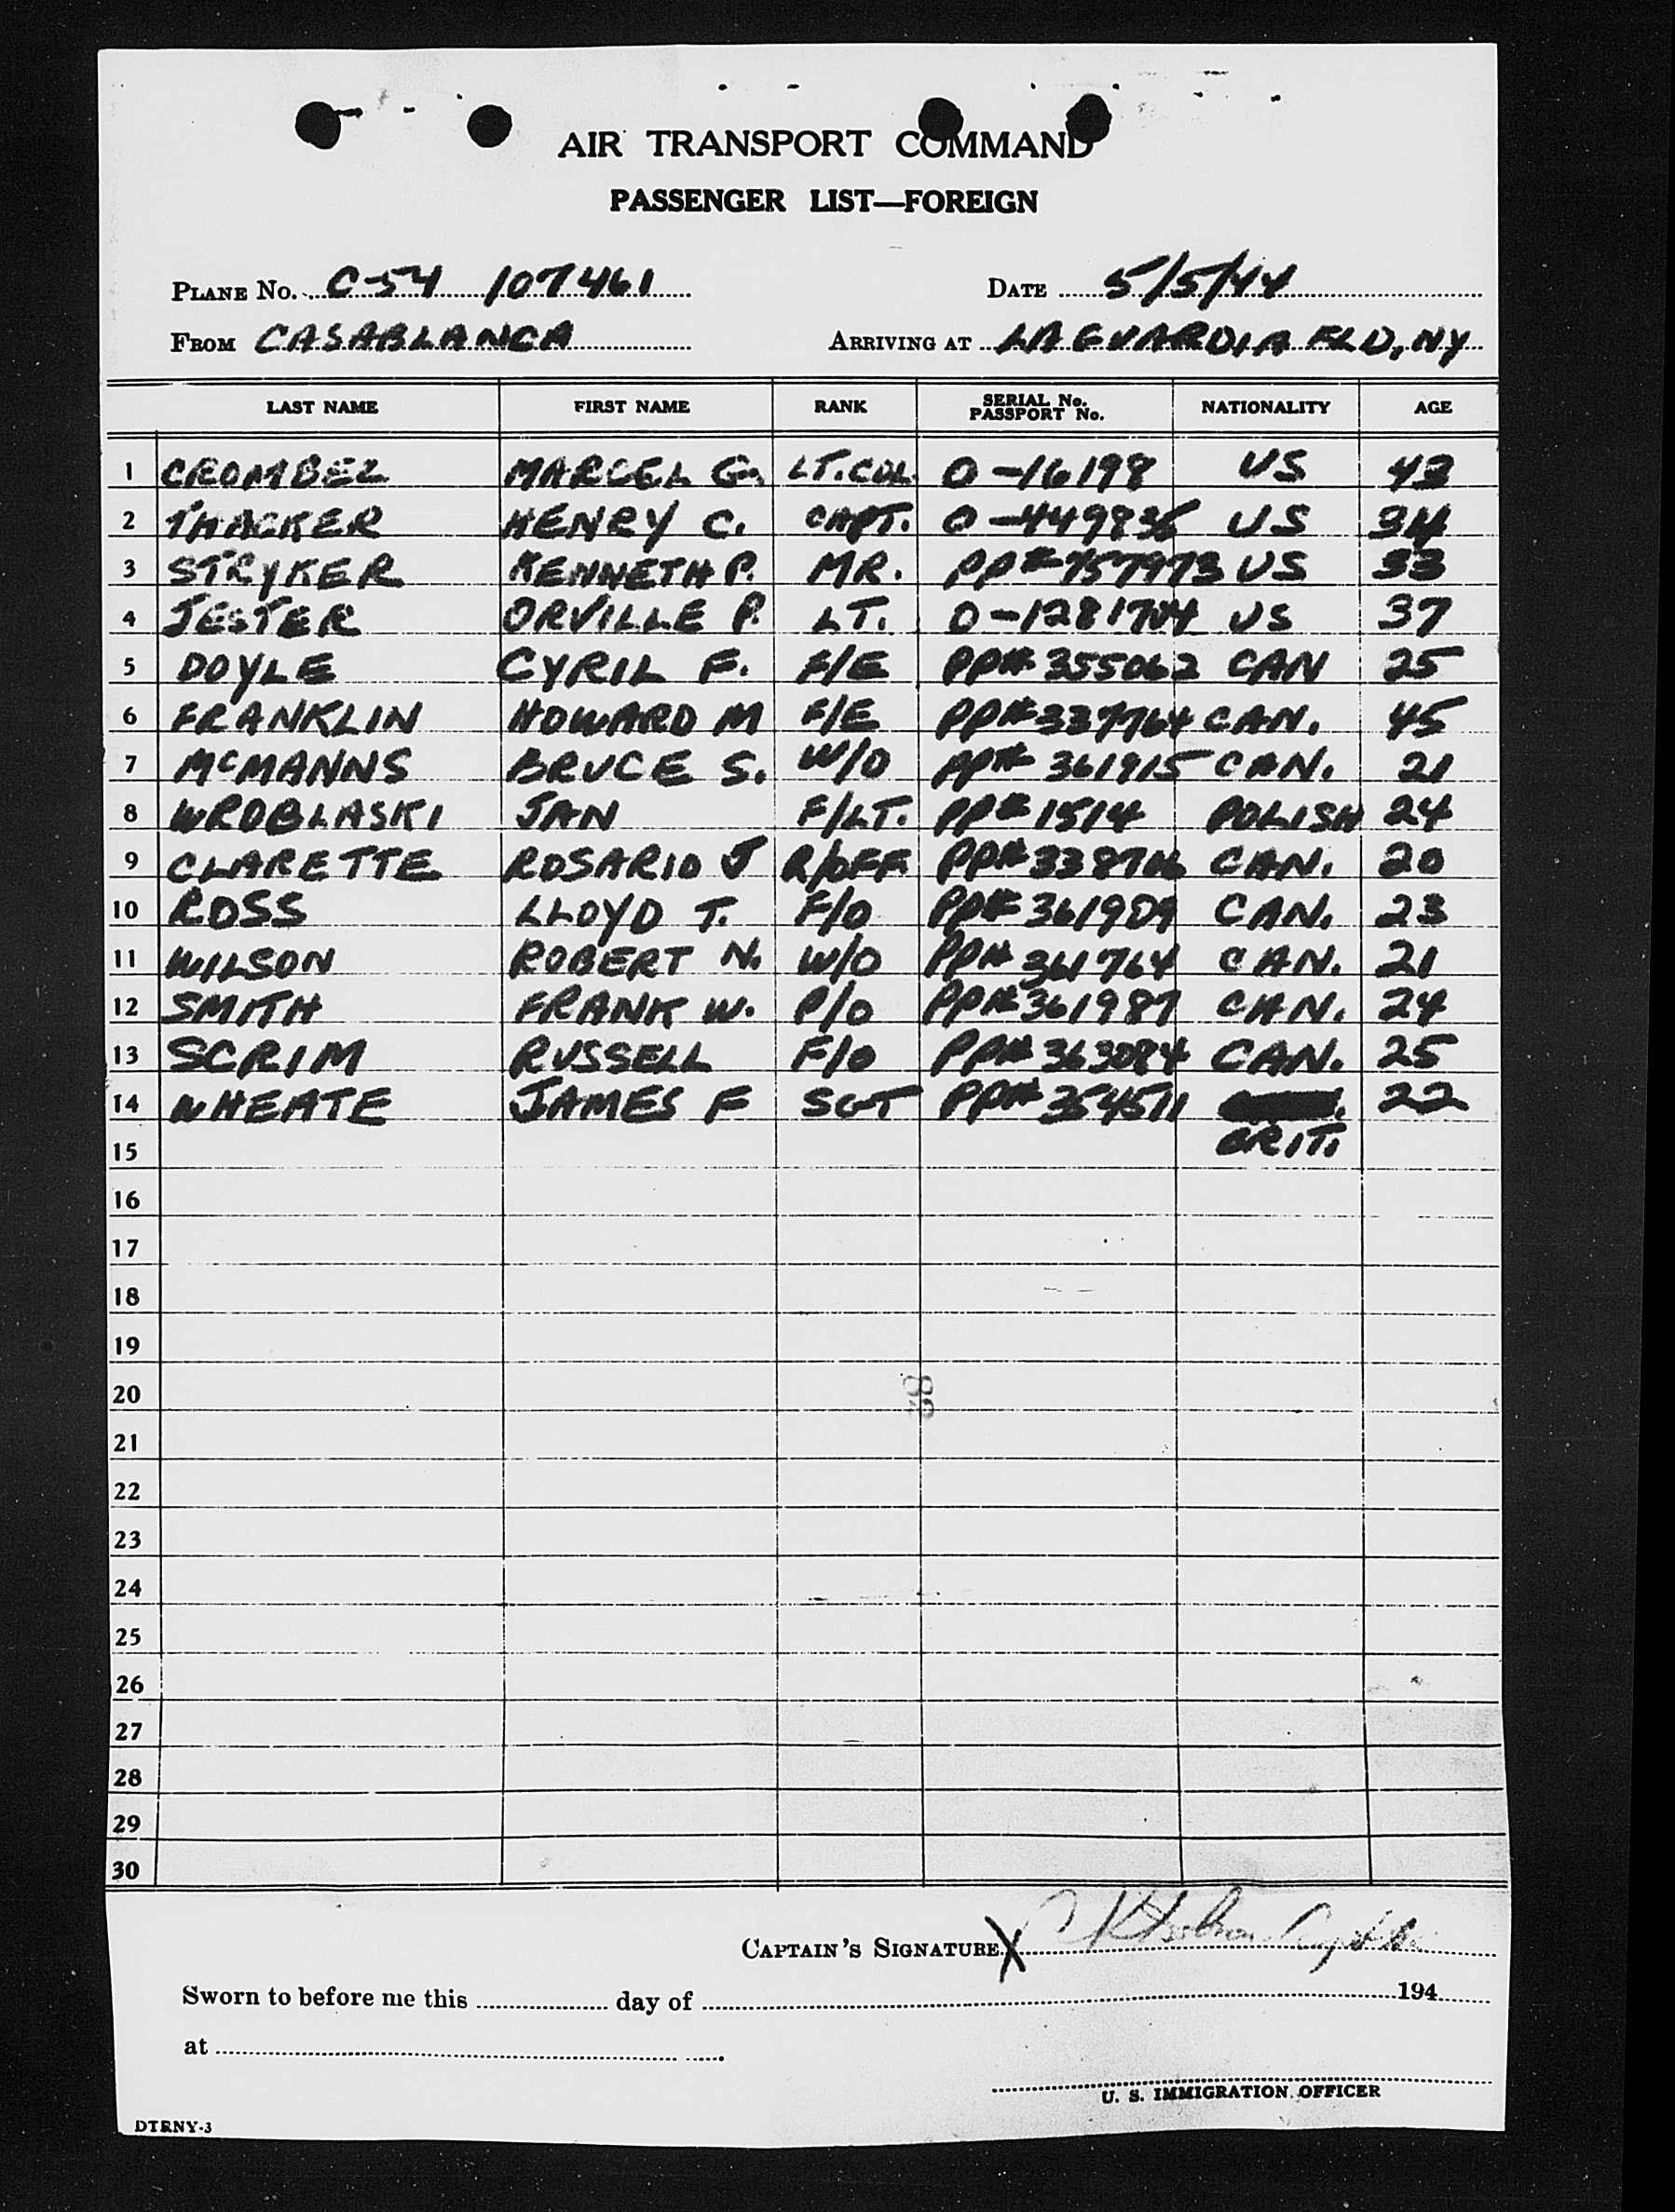 AIR TRANSPORT COMMAND
PASSENGER LIST—FOREIGN
PLANE No. C-54 107461 DATE 5/5/44
FROM CASABLANCA ARRIVING AT LA GUARDIA FLD, NY
LAST NAME FIRST NAME RANK SERIAL No. PASSPORT No. NATIONALITY AGE
1 CROMBEZ MARCEL G. LT. COL. O-16198 US 43
2 THACKER HENRY C. CAPT. O-449836 US 34
3 STRYKER KENNETH P. MR. PP# 757973 US 33
4 JESTER ORVILLE P. LT. O-1281704 US 37
5 DOYLE CYRIL F. F/E PP# 355062 CAN 25
6 FRANKLIN HOWARD M F/E PP# 337764 CAN. 45
7 McMANNS BRUCE S. W/O PP# 361915 CAN. 21
8 WROBLASKI JAN F/LT. PP# 1514 POLISH 24
9 CLARETTE ROSARIO J R/OFF PP# 338706 CAN. 20
10 ROSS LLOYD T. F/O PP# 361909 CAN. 23
11 WILSON ROBERT N. W/O PP# 361764 CAN. 21
12 SMITH FRANK W. P/O PP# 361987 CAN. 24
13 SCRIM RUSSELL F/O PP# 363084 CAN. 25
14 WHEATE JAMES F SGT PP# 354511 22
15 BRIT.
16
17
18
19
20
21
22
23
24
25
26
27
28
29
30
CAPTAIN'S SIGNATURE X
Sworn to before me this day of 194
at
U. S. IMMIGRATION OFFICER
DTRNY-3